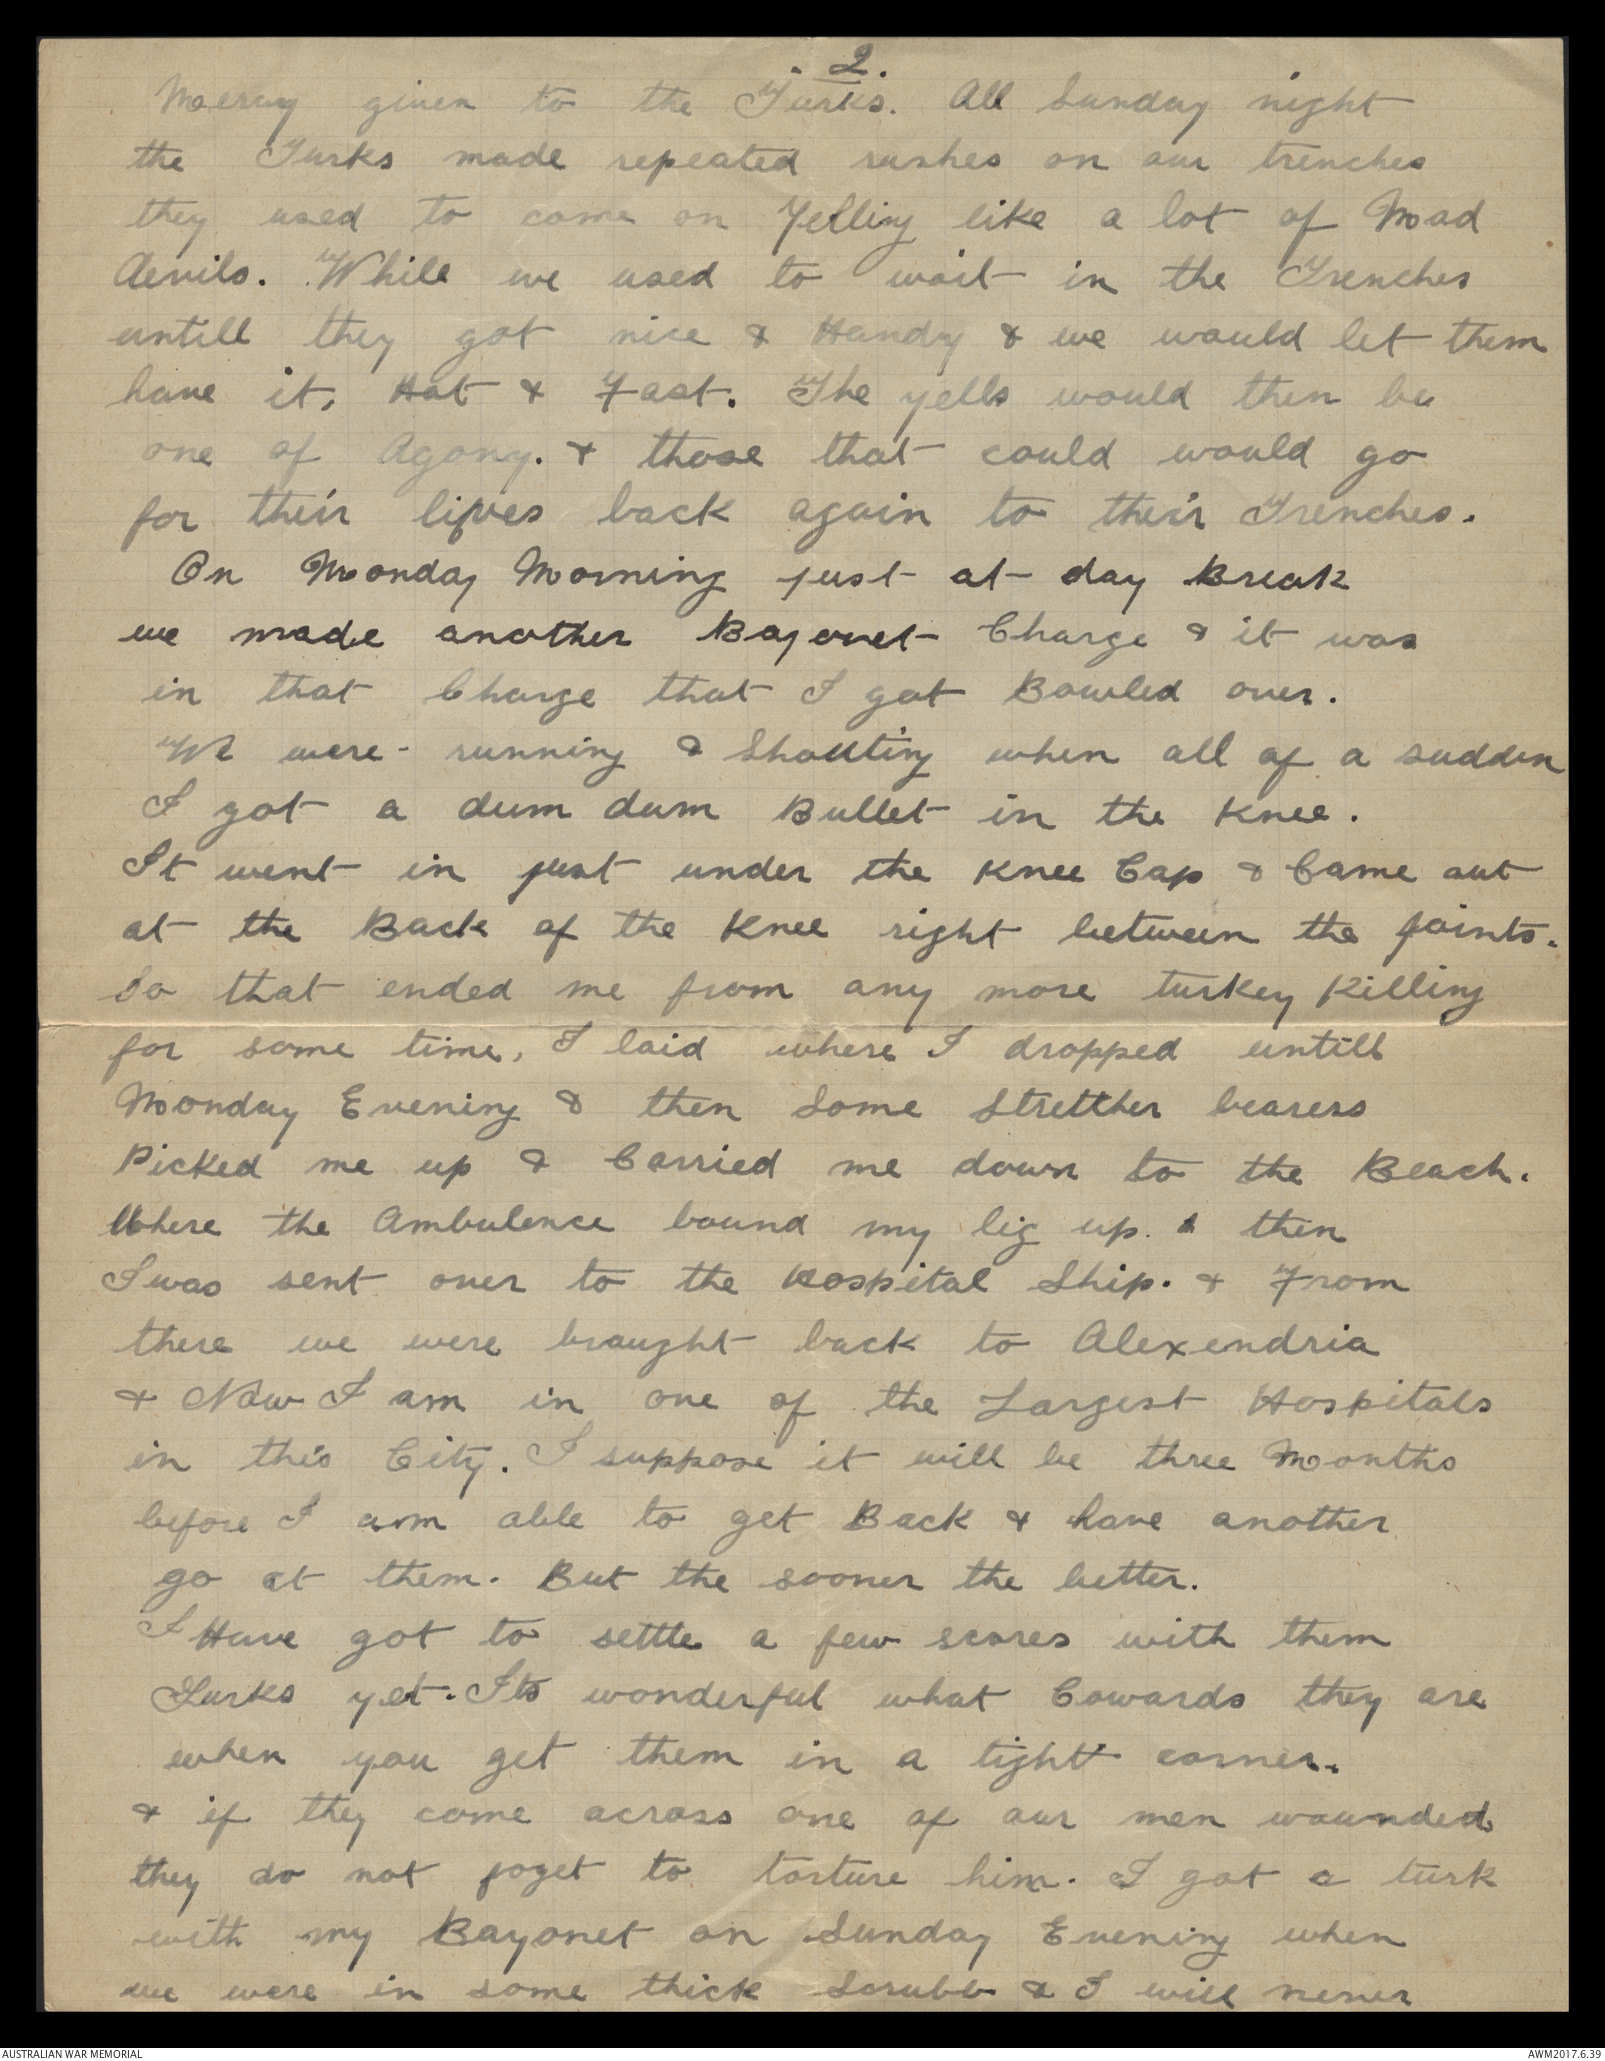 . 2.
Mercy given to the Turks. All Sunday night
the Turks made repeated rushes on our trenches
they used to come on Yelling like a lot of Mad
devils. While we used to wait in the Trenches
untill they got nice & Handy & we would let them
have it, Hot & Fast. The yells would then be
one of Agony. & those that could would go
for their lifves back again to their Trenches.
On Monday Morning just at day Break
we made another Bayonet Charge & it was
in that Charge that I got Bowled over.
We were - running & Shouting when all of a sudden
I got a dum dum Bullet in the Knee.
It went in just under the Knee Cap & Came out
at the Back of the Knee right between the joints.
So that ended me from any more turkey Killing
for some time, I laid where I dropped untill
Monday Evening & then Some Stretther bearers
Picked me up & Carried me down to the Beach.
Where the Ambulence bound my leg up. & then
I was sent over to the Hospital Ship. & From
there we were brought back to Alexendria
& Now I am in one of the Largest Hospitals
in this City. I suppose it will be three Months
before I am able to get Back & have another
go at them. But the sooner the better.
I Have got to settle a few scores with them
Turks yet. Its wonderful what Cowards they are
when you get them in a tight corner.
& if they come across one of our men wounded
they do not foget to torture him. I got a turk
with my Bayonet on Sunday Evening when
we were in some thick Scrubb & I will never
AUSTRALIAN WAR MEMORIAL
AWM2017.6.39